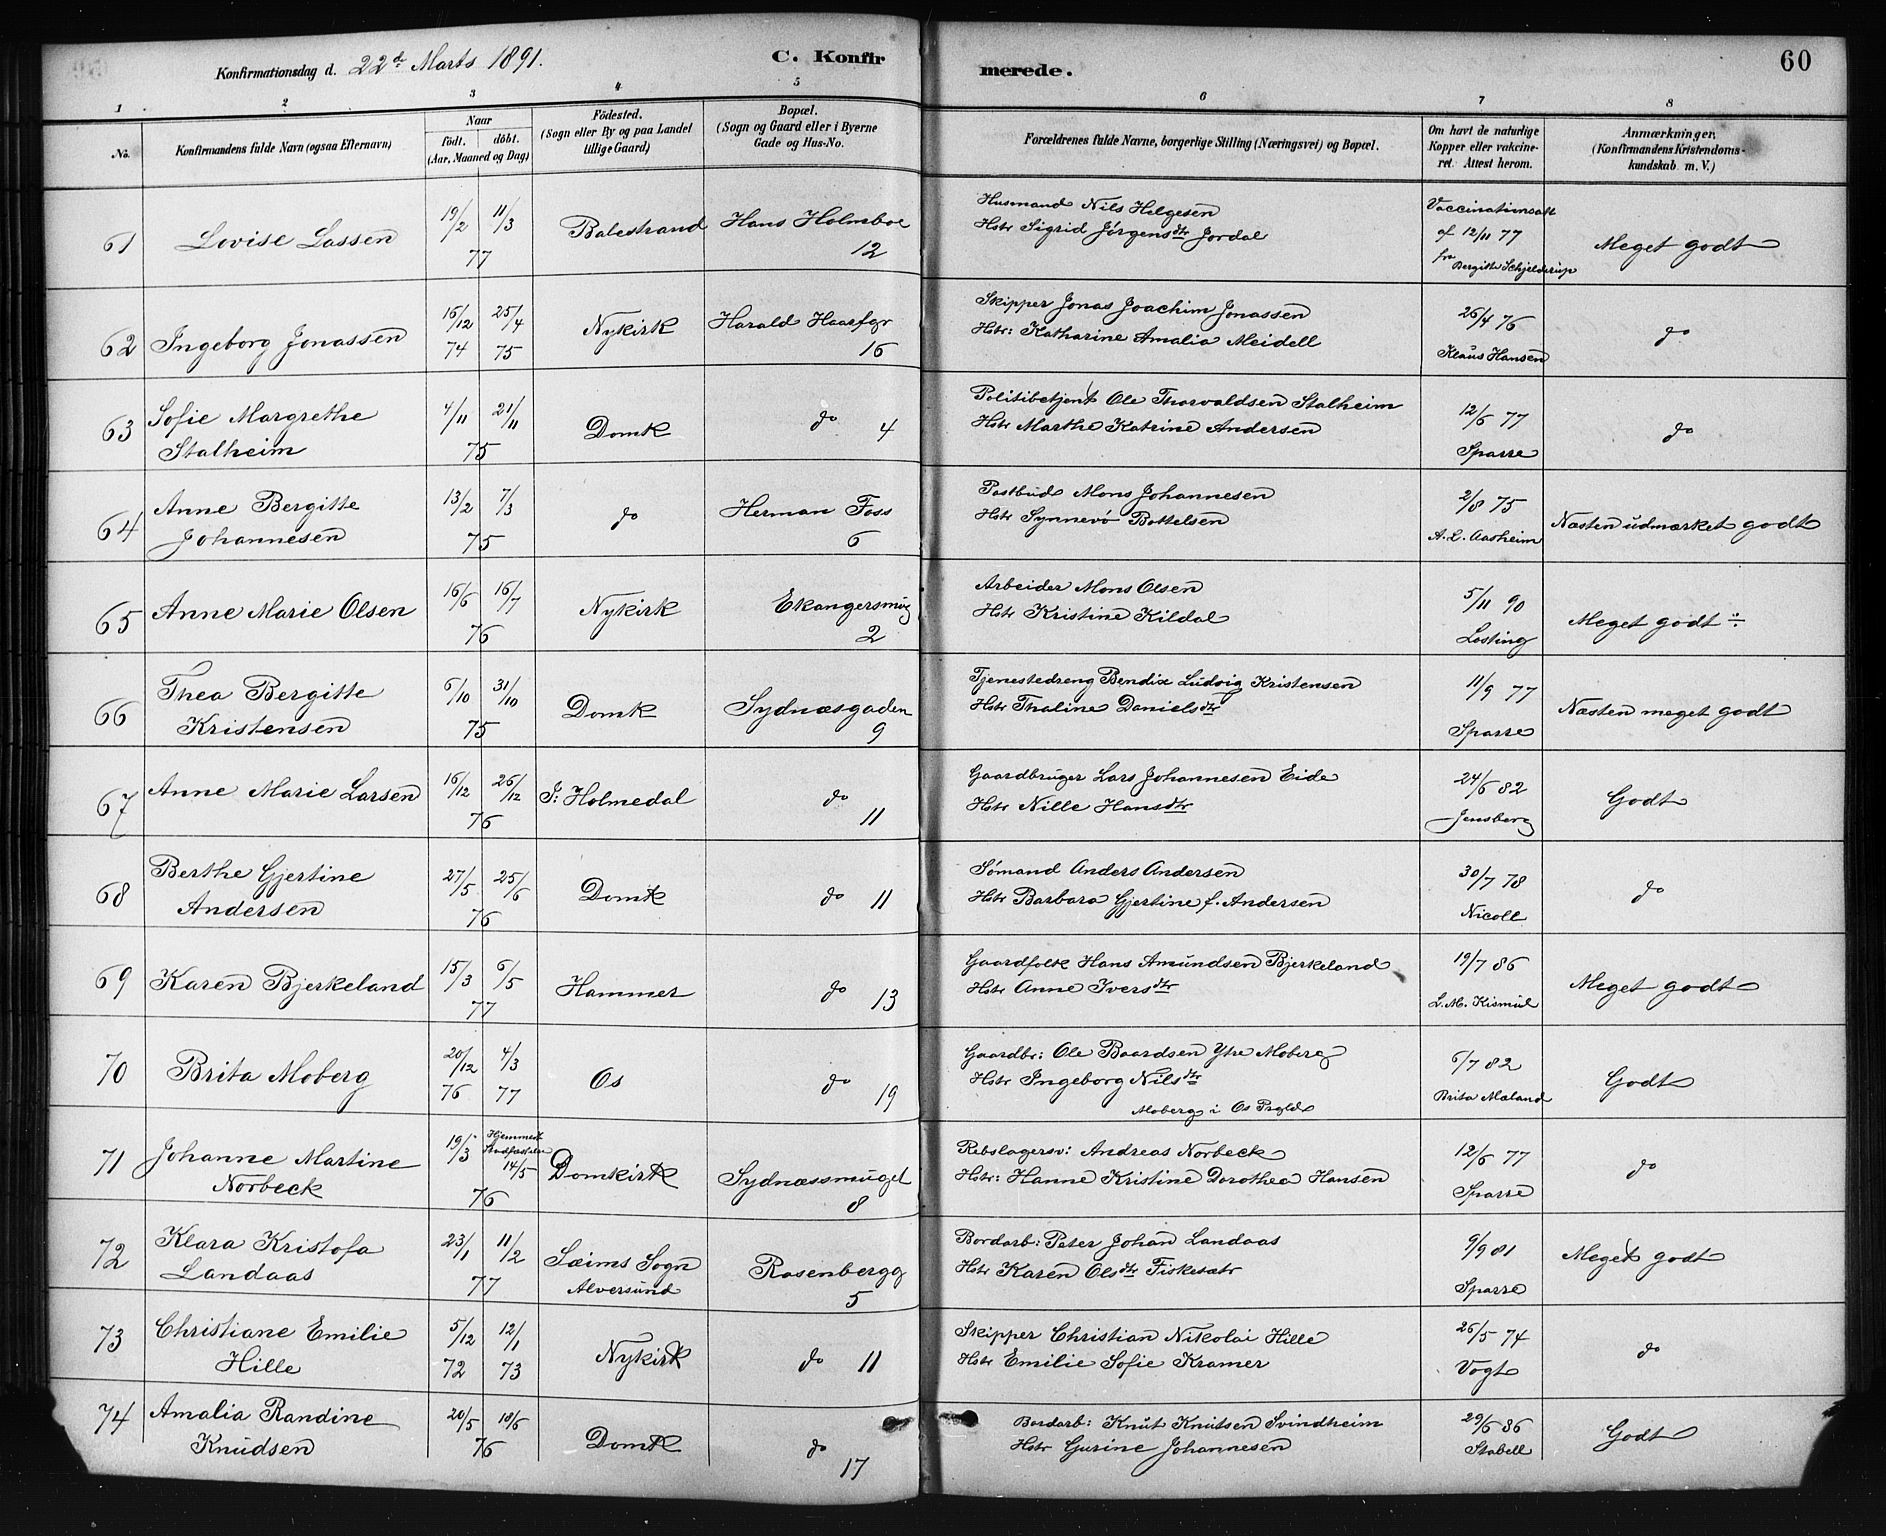 Konfirmationsdag d. 22de Marts 1891.
C. Konfirmerede.
60
1 2 3 4 5 6 7 8
No.
Konfirmandens fulde Navn (ogsaa Efternavn)
Naar
födt. döbt.
(Aar, Maaned og Dag)
Födested.
(Sogn eller By og paa Landet
tillige Gaard)
Bopæl.
(Sogn og Gaard eller i Byerne
Gade og Hus-No.
Forældrenes fulde Navne, borgerlige Stilling (Næringsvei) og Bopæl.
Om havt de naturlige
Kopper eller vakcine-
ret. Attest herom.
Anmærkninger.
(Konfirmandens Kristendoms-
kundskab m. V.)
61 Lovise Lassen 19/2 11/3 77 Balestrand Hans Holmboe 12
Husmand Nils Helgesen
Hstr Sigrid Jørgensdtr Jordal
Vaccinationsatt
af 12/11 77
fra Bergitte Schjelderup
Meget godt
62 Ingeborg Jonassen 16/12 74 25/4 75 Nykirk Harald Haarfgr 16
Skipper Jonas Joachim Jonassen
Hstr: Katharine Amalia Meidell
26/4 76
Klaus Hansen
do
63 Sofie Margrethe
Stalheim
4/11 21/11 75 Domk do 4
Politibetjent Ole Thorvaldsen Stalheim
Hstr Marthe Katrine Andersen
12/6 77
Sparre
do
64 Anne Bergitte
Johannesen
13/2 7/3 75 do Herman Foss 6
Postbud Mons Johannesen
Hstr Synnevö Bottelsen
2/8 75
A. L. Aasheim
Næsten udmærket godt
65 Anne Marie Olsen 16/6 16/7 76 Nykirk Ekangersmug 2
Arbeider Mons Olsen
Hstr Kristine Kildal
5/11 90
Losting
Meget godt ÷
66 Thea Bergitte
Kristensen
6/10 31/10 75 Domk Sydnæsgaden 9
Tjenestedreng Bendix Ludvig Kristensen
Hstr Thaline Danielsdtr
11/9 77
Sparre
Næsten meget godt
67 Anne Marie Larsen 16/12 26/12 76 I: Holmedal do 11
Gaardbruger Lars Johannesen Eide
Hstr Nille Hansdtr
24/6 82
Jensberg
Godt
68 Berthe Gjertine
Andersen
27/5 25/6 76 Domk do 11
Sømand Anders Andersen
Hstr Barbara Gjertine f. Andersen
30/7 78
Nicoll
do
69 Karen Bjerkeland 15/3 6/5 77 Hammer do 13
Gaardfolk Hans Amundsen Bjerkeland
Hstr Anne Iversdtr
19/7 86
L. M. Kismul
Meget godt
70 Brita Moberg 20/12 76 4/3 77 Os do 19
Gaardbr: Ole Baardsen Ytre Moberg
Hstr Ingeborg Nilsdtr
Moberg i Os Prgld
6/7 82
Brita Mæland
Godt
71 Johanne Martine
Norbeck
19/3 Hjemmedt
14/5 76 Domkirk Sydnæssmuget 8
Rebslagersv: Andreas Norbeck
Hstr: Hanne Kristine Dorothea Hansen
12/6 77
Sparre
do
72 Klara Kristofa
Landaas
23/1 11/2 77 Sæims Sogn
Alversund
Rosenbergg 5
Bordarb: Peter Johan Landaas
Hstr Karen Olsdtr Fisketætr
9/9 81
Sparre
Meget godt
73 Christiane Emilie
Hille
5/12 72 12/1 73 Nykirk do 11
Skipper Christian Nikolai Hille
Hstr Emilie Sofie Kramer
26/5 74
Vogt
do
74 Amalia Randine
Knudsen
20/5 18/6 76 Domk do 17
Bordarb: Knut Knutsen Svindheim
Hstr Gurine Johannesen
29/6 86
Stabell
Godt